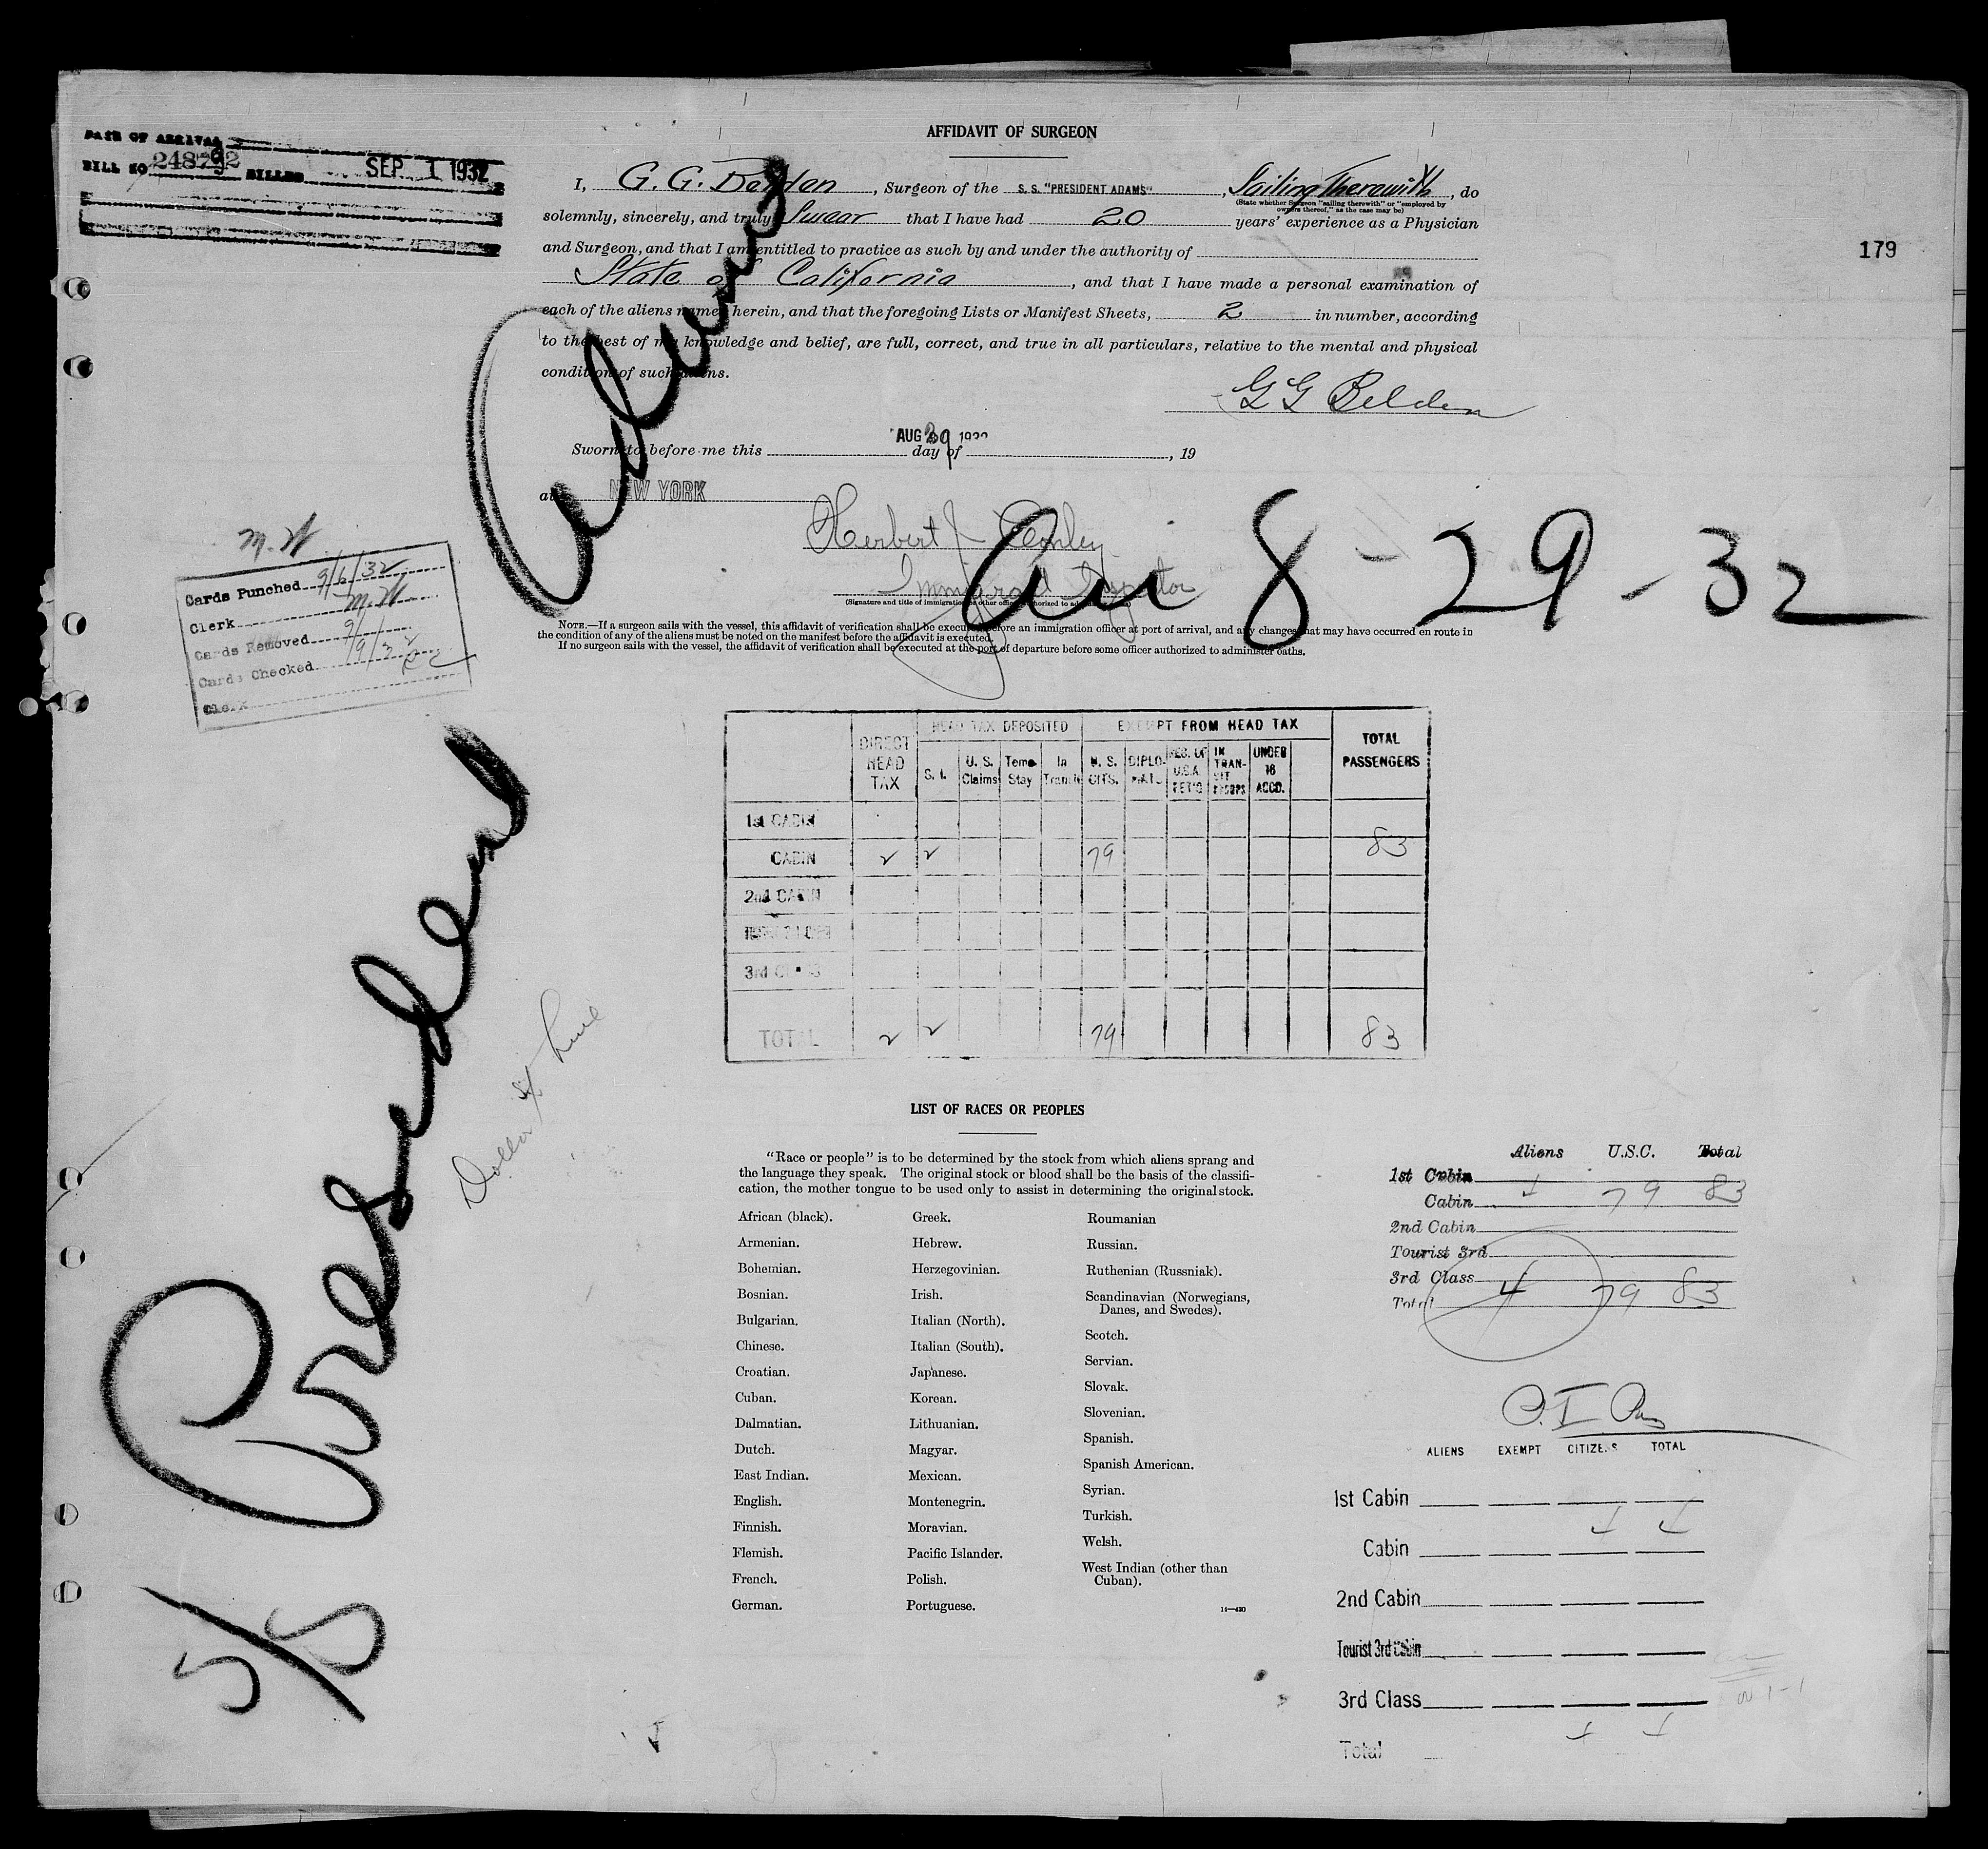 AFFIDAVIT OF SURGEON
DATE OF ARRIVAL
BILL NO. BILLED SEP 1 1932
179
I, G. G. Belden, Surgeon of the S. S. "PRESIDENT ADAMS", Sailing Therewith, do
(State whether Surgeon "sailing therewith" or "employed by
owners thereof," as the case may be)
solemnly, sincerely, and truly Swear that I have had 20 years' experience as a Physician
and Surgeon, and that I am entitled to practice as such by and under the authority of
State of California, and that I have made a personal examination of
each of the aliens named herein, and that the foregoing Lists or Manifest Sheets, 2 in number, according
to the best of my knowledge and belief, are full, correct, and true in all particulars, relative to the mental and physical
condition of such aliens.
G G Belden
AUG 29 1932
Sworn to before me this day of , 19
at NEW YORK
Herbert J
Immigrant Inspector
(Signature and title of immigration or other officer authorized to administer oaths)
NOTE.—If a surgeon sails with the vessel, this affidavit of verification shall be executed before an immigration officer at port of arrival, and any changes that may have occurred en route in
the condition of any of the aliens must be noted on the manifest before the affidavit is executed.
If no surgeon sails with the vessel, the affidavit of verification shall be executed at the port of departure before some officer authorized to administer oaths.
8-29-32
S/S President Adams
Dollar Line
M.W.
Cards Punched 9/6/32
Clerk M.W.
Cards Removed
Cards Checked 9/9/32
Clerk
DIRECT HEAD TAX
HEAD TAX DEPOSITED
EXEMPT FROM HEAD TAX
TOTAL PASSENGERS
S. I. U. S. Claims Temp Stay In Transit U. S. CITS. DIPLOMATS RES. OF U.S.A. RET'G IN TRANSIT UNDER 16 ACCD.
1st CABIN
CABIN 2 2 79 83
2nd CABIN
3rd CLASS
TOTAL 2 2 79 83
LIST OF RACES OR PEOPLES
"Race or people" is to be determined by the stock from which aliens sprang and
the language they speak. The original stock or blood shall be the basis of the classifi-
cation, the mother tongue to be used only to assist in determining the original stock.
African (black).
Armenian.
Bohemian.
Bosnian.
Bulgarian.
Chinese.
Croatian.
Cuban.
Dalmatian.
Dutch.
East Indian.
English.
Finnish.
Flemish.
French.
German.
Greek.
Hebrew.
Herzegovinian.
Irish.
Italian (North).
Italian (South).
Japanese.
Korean.
Lithuanian.
Magyar.
Mexican.
Montenegrin.
Moravian.
Pacific Islander.
Polish.
Portuguese.
Roumanian
Russian.
Ruthenian (Russniak).
Scandinavian (Norwegians,
Danes, and Swedes).
Scotch.
Servian.
Slovak.
Slovenian.
Spanish.
Spanish American.
Syrian.
Turkish.
Welsh.
West Indian (other than
Cuban).
14—430
Aliens U.S.C. Total
1st Cabin
Cabin 4 79 83
2nd Cabin
Tourist 3rd
3rd Class
Total 4 79 83
ALIENS EXEMPT CITIZENS TOTAL
1st Cabin
Cabin
2nd Cabin
Tourist 3rd Cabin
3rd Class
Total